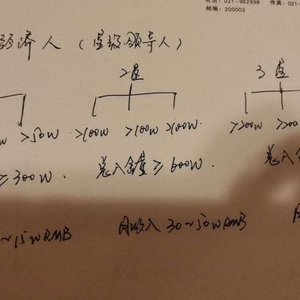 电话：021-962998 传真：021-
邮编：200002
经济人（星级领导人）
2星 3星
>50W >100W >100W >100W >200W >200
≥300W. 总入金量≥600W. 总入
~15W RMB 月收入30~50W RMB 月